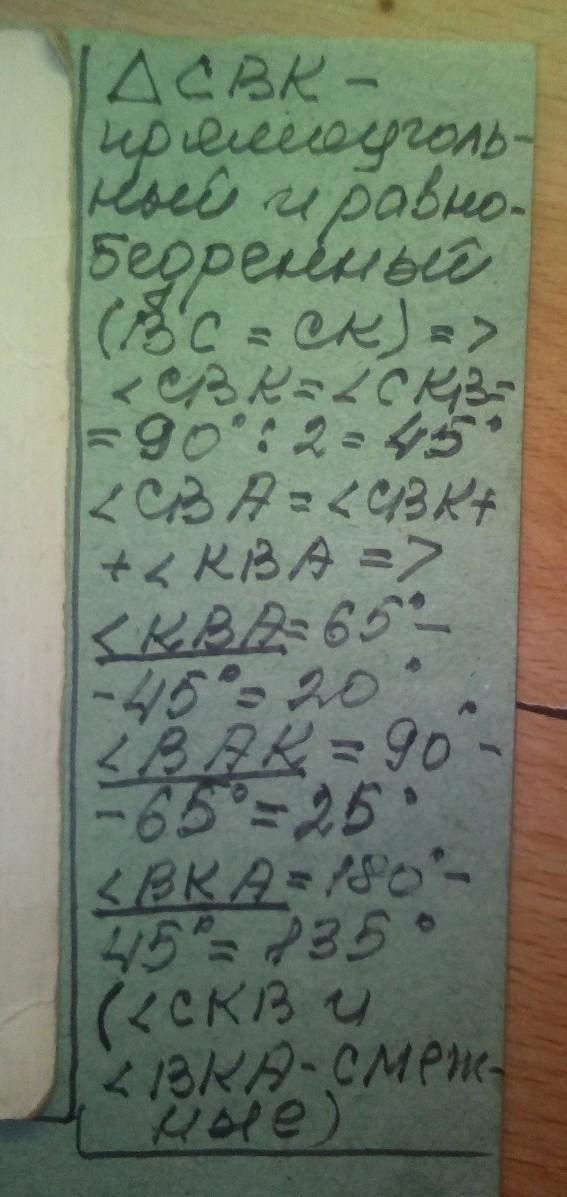 △CBK -
прямоуголь-
ный и равно-
бедренный
(BC = CK) =>
<CBK=<CKB=
=90°:2=45°
<CBA=<CBK+
+<KBA =>
<KBA=65°-
-45°=20°
<BAK=90°-
-65°=25°
<BKA=180°-
45°=135°
(<CKB и
<BKA-смеж-
ные)